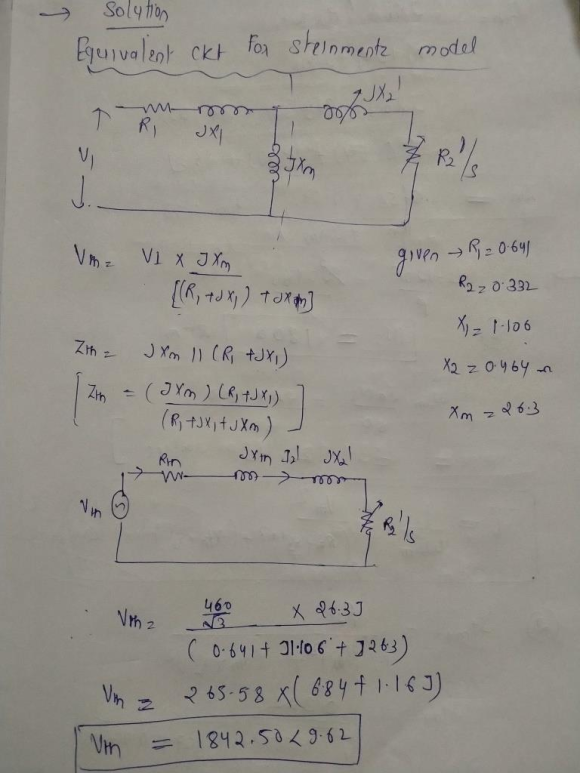 → Solution
Equivalent ckt For Steinmentz model
R1 JX1 JX2'
V1 JXm R2'/s
Vth = V1 × JXm
[(R1 + JX1) + JXm]
given → R1 = 0.641
R2 = 0.332
X1 = 1.106
X2 = 0.464 Ω
Xm = 26.3
Zth = JXm || (R1 + JX1)
[Zth = (JXm) (R1 + JX1)
(R1 + JX1 + JXm)]
Rth JXth I2' JX2'
Vth R2'/s
Vth = 460/√3 × 26.3J
(0.641 + J1.106 + J263)
Vth = 265.58 × (6.84 + 1.16J)
Vth = 1842.50 < 9.62